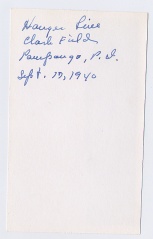 Hanger Line
Clark Field
Pampanga, P.I.
Sept. 15, 1940